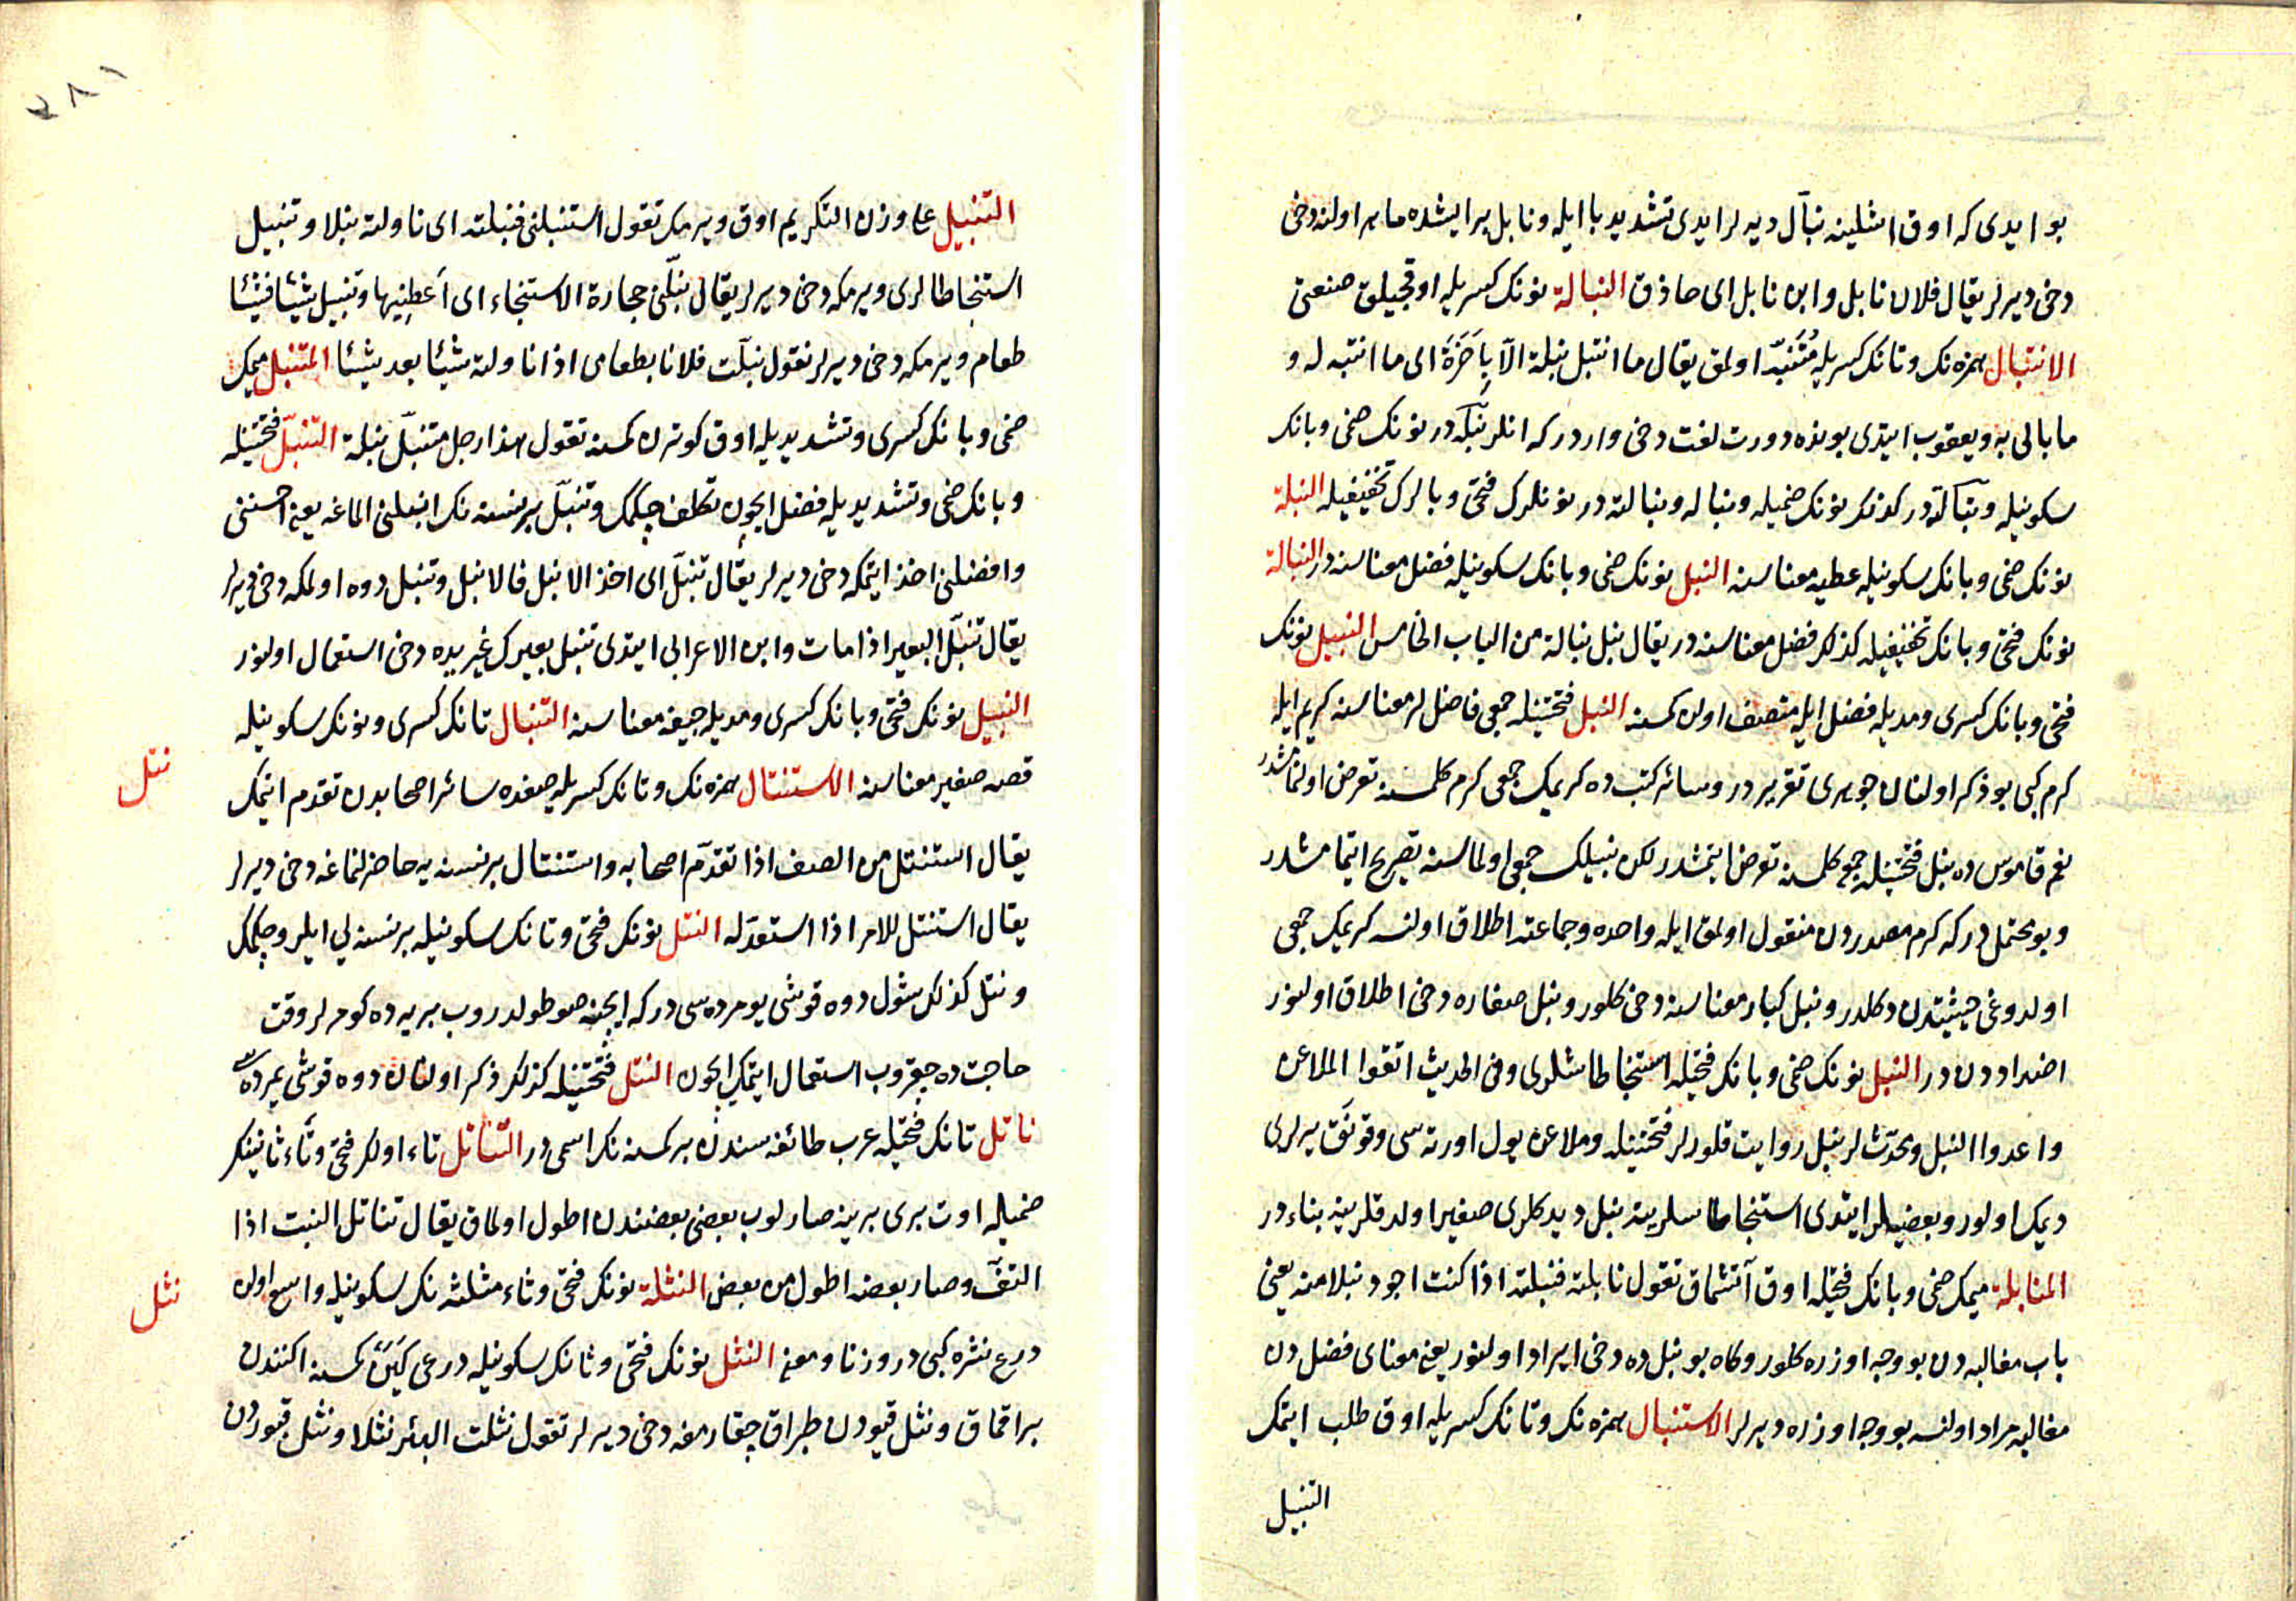 بو ايدى كه اوق اشلينه نبّال ديه لر ايدى تشديد با ايله و نابل بر ايشده ماهر اولنه دخى
دخى ديرلر يقال فلان نابل وابن نابل اى حاذق النبالة نونك كسريله اوقجيلق صنعتى
الانتبال همزه نك و تانك كسريله مُتَنَبّه اولمق يقال ما انتبل نبلة الّا بِاَخَرَة اى ما انتبه له و
ما بالى به ويعقوب ايتدى بونده دورت لغت دخى واردر كه انلر نبله در نونك ضمى و بانك
سكونيله و نبالة در كذلك نونك ضميله و نباله و نبالته در نونلرك فتحى و بالرك تخفيفيله النبلة
نونك ضمى و بانك سكونيله عطيه معناسنه النبل نونك ضمى و بانك سكونيله فضل معناسنه در النبالة
نونك فتحى و بانك تخفيفيله كذلك فضل معناسنه در يقال نبل نبالة من الباب الخامس النبيل نونك
فتحى و بانك كسرى ومديله فضل ايله متصف اولن كمسنه النبل فتحتينله جمعى فاضللر معناسنه كريم ايله
كرم كبى بو ذكر اولنان جوهرى تقريردر وسائر كتبده كريمك جمعى كرم كلمسنه تعرض اولنمامشدر
نعم قاموس ده نبل فتحتينله جمع كلمسنه تعرض ايتمشدر لكن نبيلك جمعى اولماسنه تصريح ايتمامشدر
وبو محتملدر كه كرم مصدردن منقول اولمق ايله واحده وجماعته اطلاق اولنه كريمك جمعى
اولدوغى حيثيتدن دكلدر ونبل كبار معناسنه دخى كلور ونبل صغاره دخى اطلاق اولنور
اضداددن در النبل نونك ضمى و بانك فتحيله استنجا طاشلرى وفى الحديث اتقوا الملاعن
واعدوا النبل ومحدّثلر نبل روايت قلورلر فتحتينله وملاعن يول اورته سى وقونق يرلرى
ديمك اولور وبعضيلر ايتدى استنجا طاشلرينه نبل ديدكلرى صغير اولدقلرينه بناءدر
المنابلة ميمك ضمى و بانك فتحيله اوق آتشماق تقول نابلته فنبلته اذا كنت اجود نبلا منه يعنى
باب مغالبه دن بو وجه اوزره كلور وكاه بو نبل ده دخى ايراد اولنور يعنى معناى فضل دن
مغالبه مراد اولنسه بو وجه اوزره ديرلر الاستنبال همزه نك و تانك كسريله اوق طلب ايتمك
التنبيل
٢٨١
التنبيل على وزن التكريم اوق ويرمك تقول استنبلنى فنبلته اى ناولته نبلا و تنبيل
استنجا طاشلرى ويرمكه دخى ديرلر يقال نبّلنى حجارة الاستنجاء اى أعطِنيها و تنبيل شيئا فشيئا
طعام ويرمكه دخى ديرلر تقول نبّلت فلانا بطعامى اذا ناولته شيئا بعد شيئا المتنبل ميمك
ضمى و بانك كسرى و تشديديله اوق كوترن كمسنه تقول هذا رجل متنبّل نبلة التنبّل فتحتينله
و بانك ضمى و تشديديله فضل ايچون تكلف چكمك و تنبّل بر نسنه نك انبلنى الماغه يعنى احسنى
وافضلنى اخذ ايتمكه دخى ديرلر يقال تنبّل اى اخذ الانبل فالانبل و تنبل دوه اولمكه دخى ديرلر
يقال تنبّل البعير اذا مات وابن الاعرابى ايتدى تنبل بعيرك غيريده دخى استعمال اولنور
النبيل نونك فتحى و بانك كسرى ومديله جيفه معناسنه التنبال تانك كسرى و نونك سكونيله
قصه صغير معناسنه الاستنتال همزه نك و تانك كسريله صفده سائر اصحابدن تقدم ايتمك
نتل
يقال استنتل من الصف اذا تقدّم اصحابه و استنتال بر نسنه يه حاضرلنماغه دخى ديرلر
يقال استنتل للامر اذا استعدّ له النتل نونك فتحى و تانك سكونيله بر نسنه يى ايلرو چكمك
و نتل كذلك شول دوه قوشى يومرده سى در كه ايچنه صو طولدروب بريه ده كومرلر وقت
حاجت ده چقروب استعمال ايتمك ايچون النتل فتحتينله كذلك ذكر اولنان دوه قوشى يمرده سى
ناتل تانك فتحيله عرب طائفه سندن بر كمسنه نك اسمى در التناتل تاء اولك فتحى و تاء ثانينك
ضميله اوت برى برينه صارلوب بعضى بعضندن اطول اولماق يقال تناتل النبت اذا
التفّ وصار بعضه اطول من بعض النثلة نونك فتحى و ثاء مثلثه نك سكونيله واسع اولن
نثل
درع نثره كبى در وزنا ومعنى النثل نونك فتحى و ثانك سكونيله درعى كين كمسنه اكنندن
براقماق و نثل قيودن طپراق چقارمغه دخى ديرلر تقول نثلت البئر نثلا و نثل قبوردن